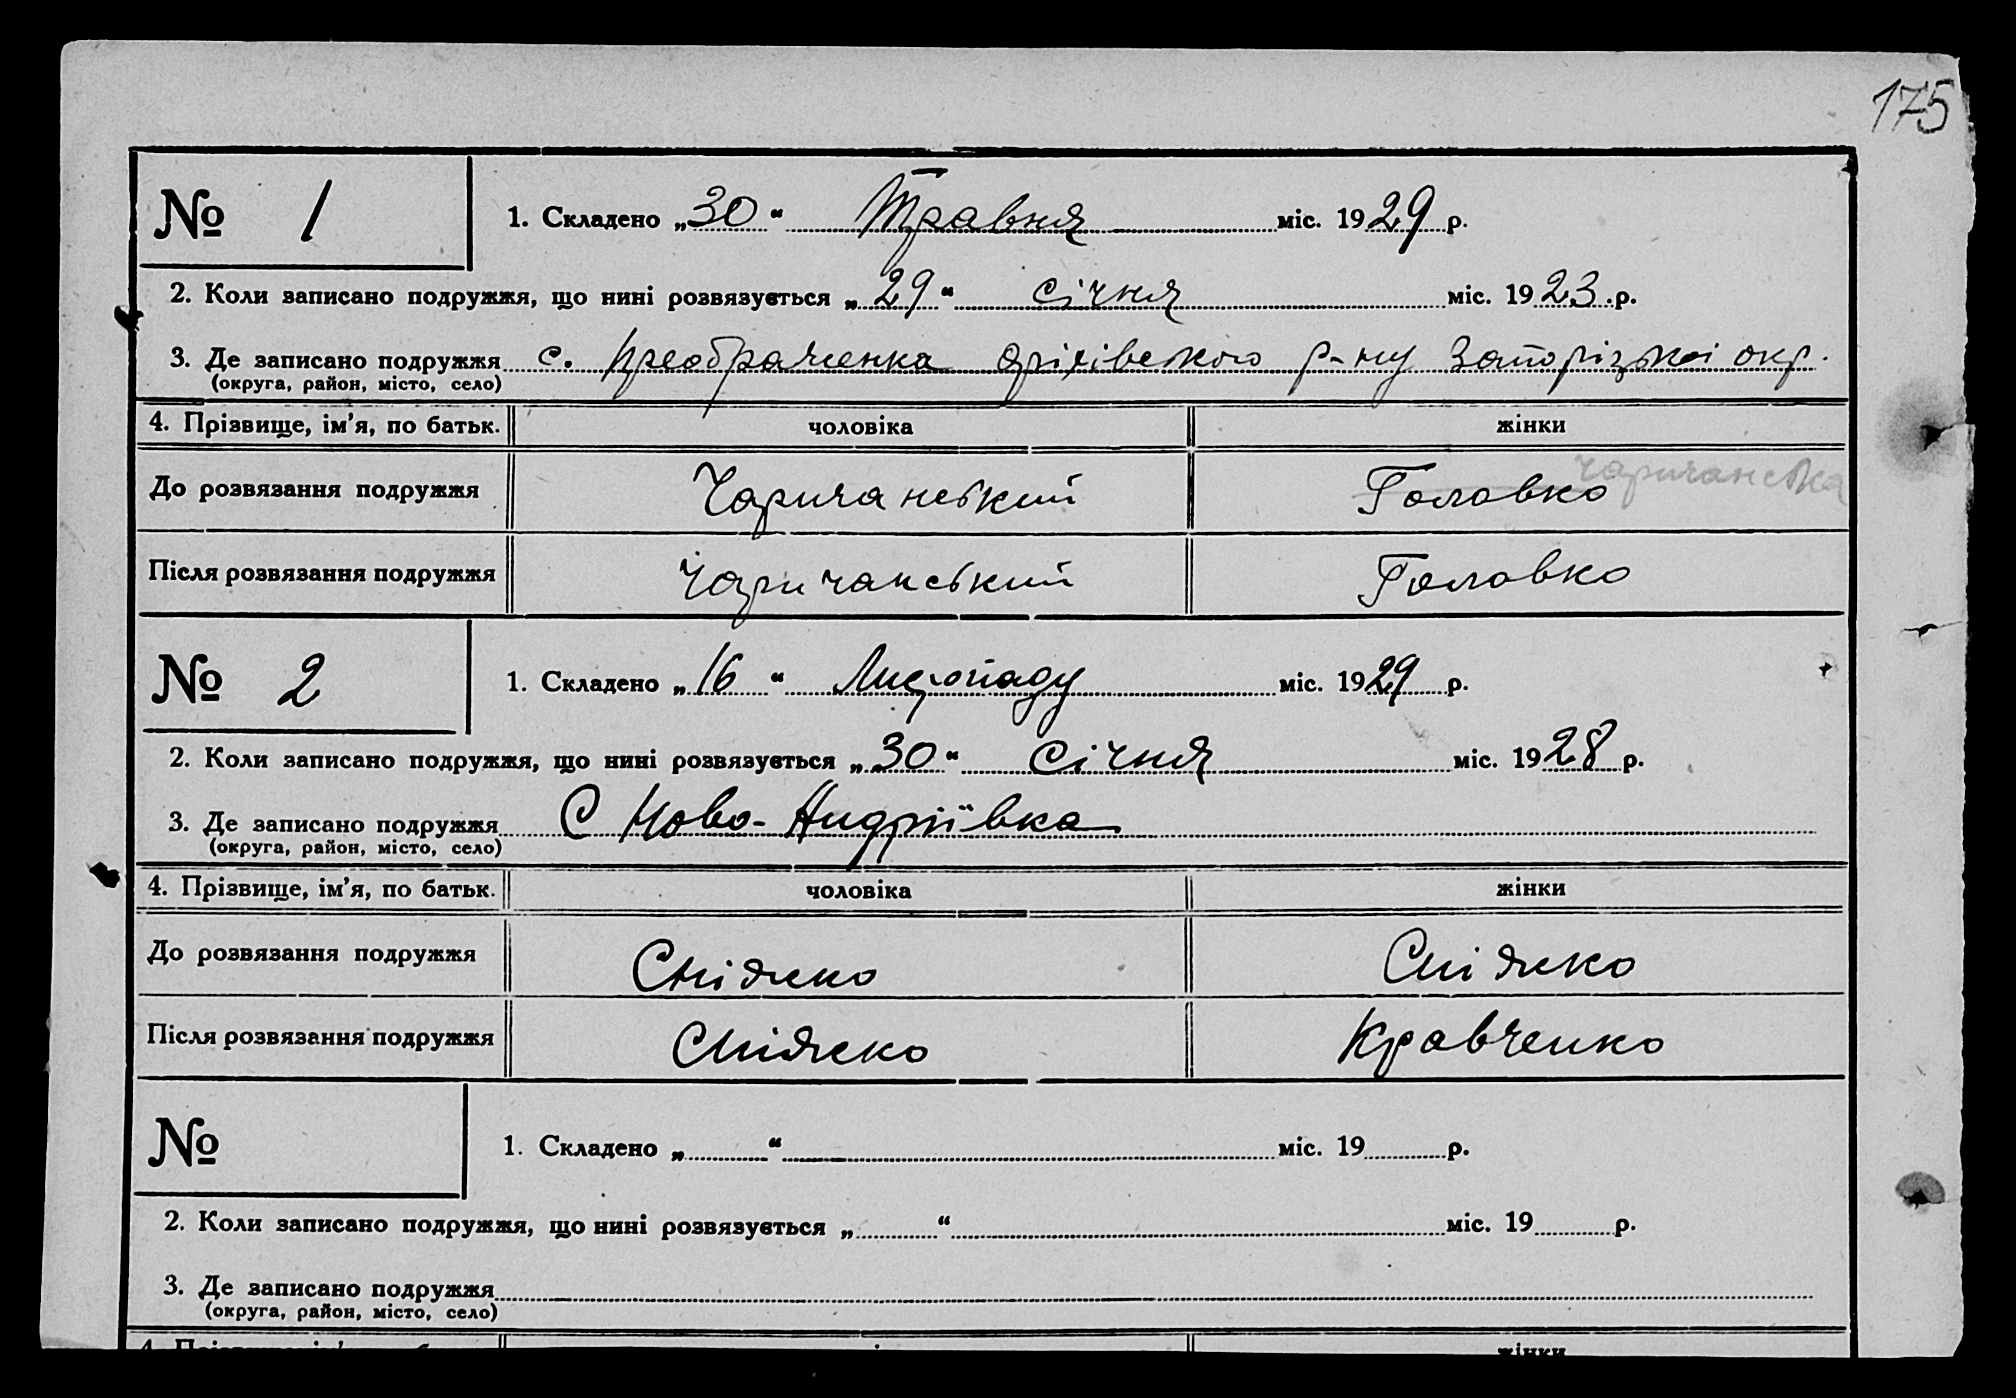 175
№ 1
1. Складено „30“ Травня міс. 1929 р.
2. Коли записано подружжя, що нині розвязується „29“ січня міс. 1923 р.
3. Де записано подружжя с. Преображенка Оріхівського р-ну Запорізької окр.
(округа, район, місто, село)
4. Прізвище, ім'я, по батьк. чоловіка жінки
Чаричанська
До розвязання подружжя Чаричанський Головко
Після розвязання подружжя Чаричанський Головко
№ 2
1. Складено „16“ Листопаду міс. 1929 р.
2. Коли записано подружжя, що нині розвязується „30“ Січня міс. 1928 р.
3. Де записано подружжя С Ново-Андріївка
(округа, район, місто, село)
4. Прізвище, ім'я, по батьк. чоловіка жінки
До розвязання подружжя
Після розвязання подружжя Кравченко
№
1. Складено „ “ міс. 19 р.
2. Коли записано подружжя, що нині розвязується „ “ міс. 19 р.
3. Де записано подружжя
(округа, район, місто, село)
жінки